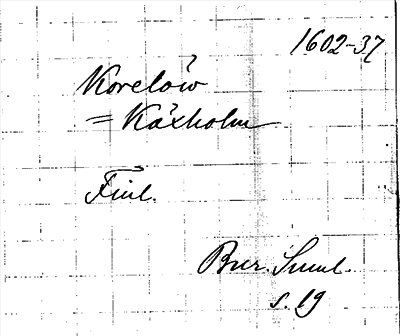 1602-37
Korelów
= Käxholm
Finl.
Bur. Suml.
s. 19